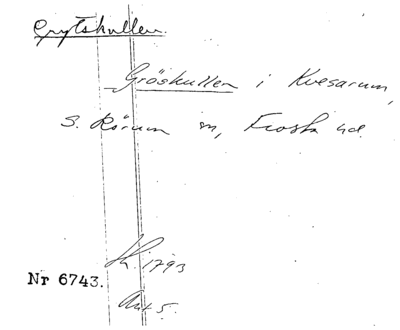 Grytshullen.
Gröshullen i Kvesarum,
S. Rörum sn, Frosta hd.
Sk. 1793
Nr 6743.
Akt 5.